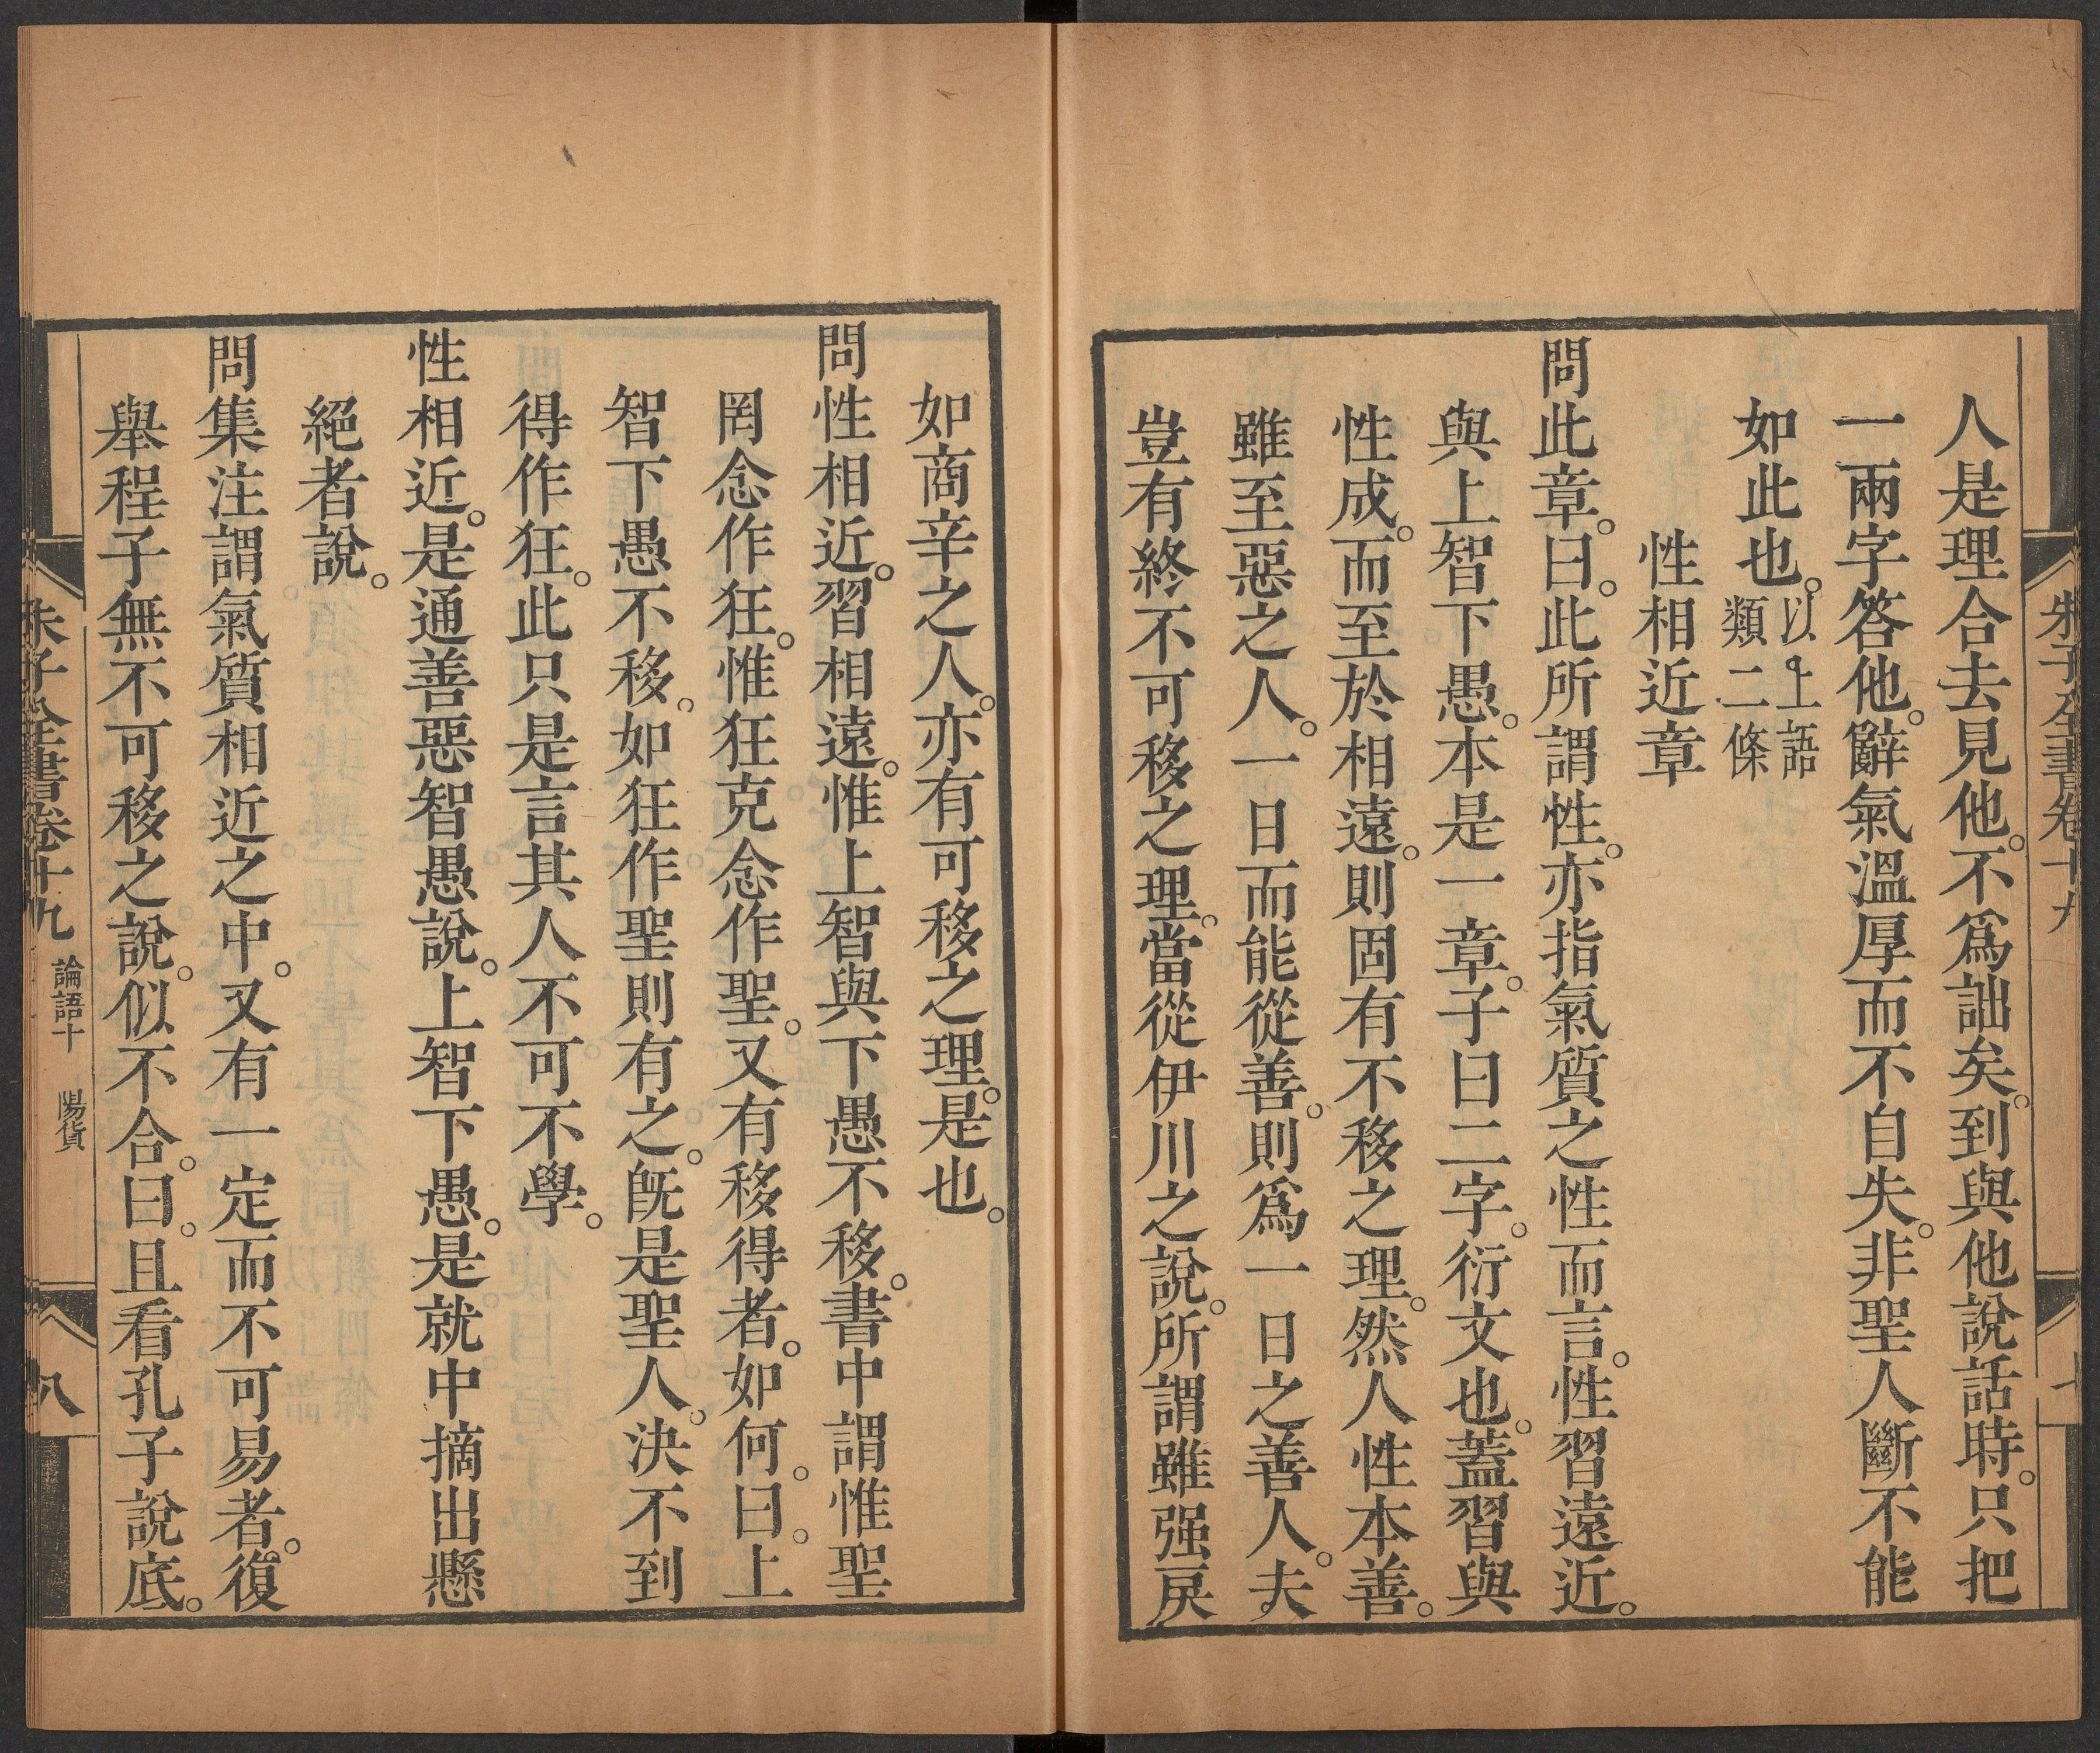 朱子全書卷十九
人是理合去見他。不爲詘矣。到與他說話時。只把
一兩字答他。辭氣溫厚而不自失。非聖人斷不能
如此也。以上語類二條
性相近章
問此章。曰。此所謂性。亦指氣質之性而言。性習遠近。
與上智下愚。本是一章。子曰二字。衍文也。蓋習與
性成。而至於相遠。則固有不移之理。然人性本善。
雖至惡之人。一日而能從善。則爲一日之善人。夫
豈有終不可移之理。當從伊川之說。所謂雖强戾
如商辛之人。亦有可移之理。是也。
問性相近。習相遠。惟上智與下愚不移。書中謂惟聖
罔念作狂。惟狂克念作聖。又有移得者。如何。曰。上
智下愚不移。如狂作聖則有之。旣是聖人。決不到
得作狂。此只是言其人不可不學。
性相近。是通善惡智愚說。上智下愚。是就中摘出懸
絕者說。
問集注謂氣質相近之中。又有一定而不可易者。復
舉程子無不可移之說。似不合。曰。且看孔子說底。
朱子全書卷十九 論語十 陽貨 八